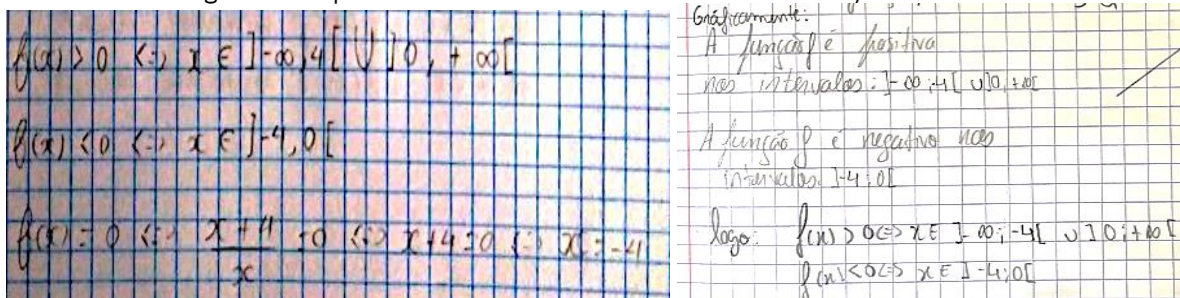 f(x) > 0 <=> x ∈ ]-∞,4[ U ]0, +∞[
f(x) < 0 <=> x ∈ ]-4,0[
f(x) = 0 <=> x+4/x = 0 <=> x+4=0 <=> x=-4
Gráficamente:
A função f é positiva
nos intervalos: ]-∞;-4[ U ]0;+∞[
A função f é negativa nos
intervalos. ]-4;0[
logo: f(x) > 0 <=> x ∈ ]-∞;-4[ U ]0;+∞[
f(x) < 0 <=> x ∈ ]-4;0[